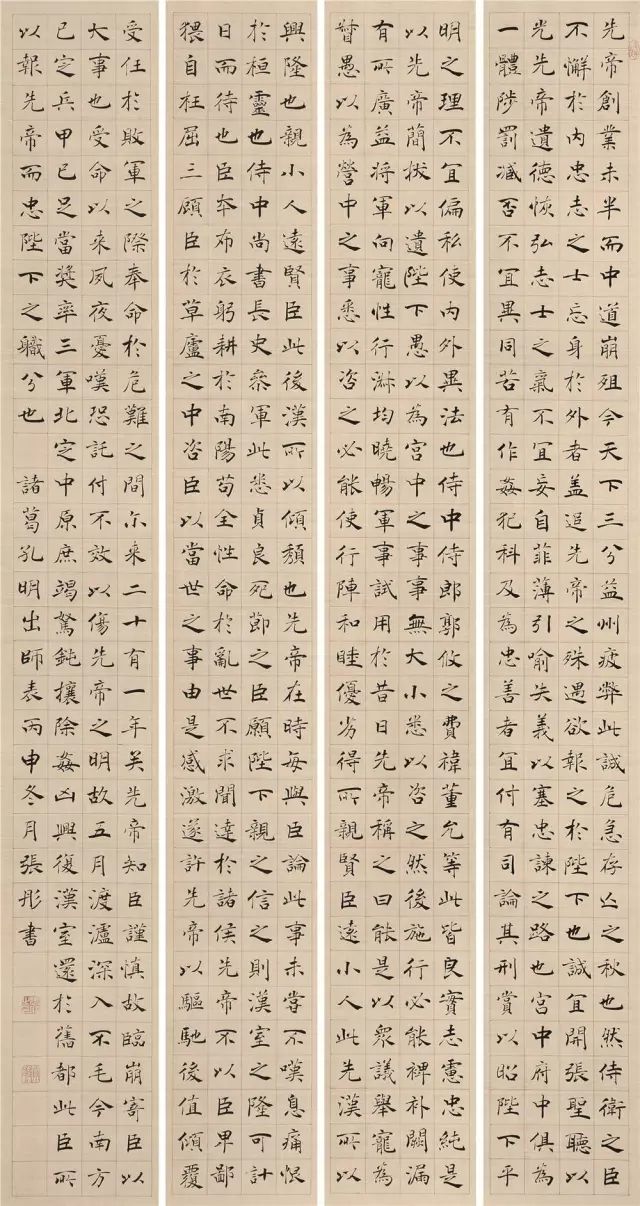 先帝創業未半而中道崩殂今天下三分益州疲弊此誠危急存亡之秋也然侍衛之臣
不懈於內忠志之士忘身於外者蓋追先帝之殊遇欲報之於陛下也誠宜開張聖聽以
光先帝遺德恢弘志士之氣不宜妄自菲薄引喻失義以塞忠諫之路也宮中府中俱為
一體陟罰臧否不宜異同若有作姦犯科及為忠善者宜付有司論其刑賞以昭陛下平
明之理不宜偏私使內外異法也侍中侍郎郭攸之費禕董允等此皆良實志慮忠純是
以先帝簡拔以遺陛下愚以為宮中之事事無大小悉以咨之然後施行必能裨補闕漏
有所廣益將軍向寵性行淑均曉暢軍事試用於昔日先帝稱之曰能是以眾議舉寵為
督愚以為營中之事悉以咨之必能使行陣和睦優劣得所親賢臣遠小人此先漢所以
興隆也親小人遠賢臣此後漢所以傾頹也先帝在時每與臣論此事未嘗不嘆息痛恨
於桓靈也侍中尚書長史參軍此悉貞良死節之臣願陛下親之信之則漢室之隆可計
日而待也臣本布衣躬耕於南陽苟全性命於亂世不求聞達於諸侯先帝不以臣卑鄙
猥自枉屈三顧臣於草廬之中咨臣以當世之事由是感激遂許先帝以驅馳後值傾覆
受任於敗軍之際奉命於危難之間尓来二十有一年矣先帝知臣謹慎故臨崩寄臣以
大事也受命以来夙夜憂嘆恐託付不效以傷先帝之明故五月渡瀘深入不毛今南方
已定兵甲已足當獎率三軍北定中原庶竭駑鈍攘除姦凶興復漢室還於舊都此臣所
以報先帝而忠陛下之職分也 諸葛孔明出師表丙申冬月張彤書